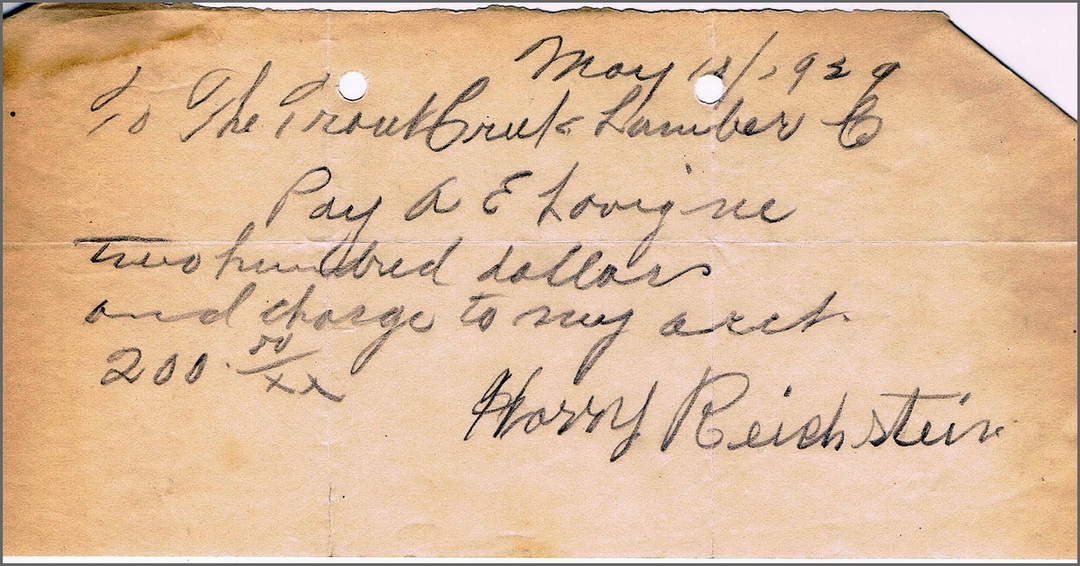 May 1929
To The Trout Creek Lumber Co
Pay A E Lavigne
two hundred dollars
and charge to my acct.
200. no/xx
Harry Reichstein